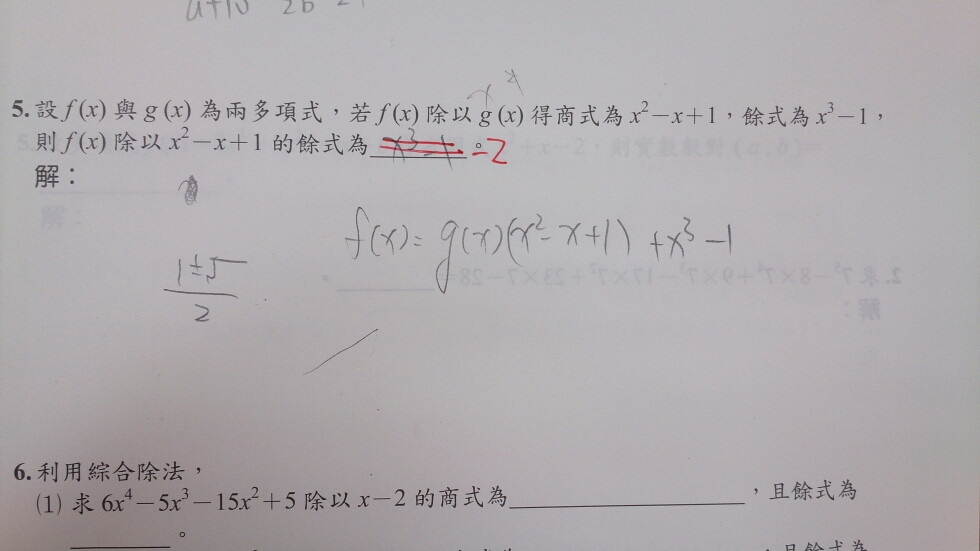 5. 設 f(x) 與 g(x) 為兩多項式，若 f(x) 除以 g(x) 得商式為 x²−x+1，餘式為 x³−1，
則 f(x) 除以 x²−x+1 的餘式為 。 −2
解：
f(x)= g(x)(x²−x+1) +x³−1
1±√
2
6. 利用綜合除法，
(1) 求 6x⁴−5x³−15x²+5 除以 x−2 的商式為 ，且餘式為
。